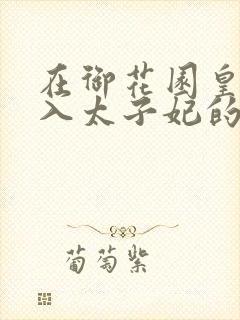 在御花园皇
入太子妃的
葡萄紫